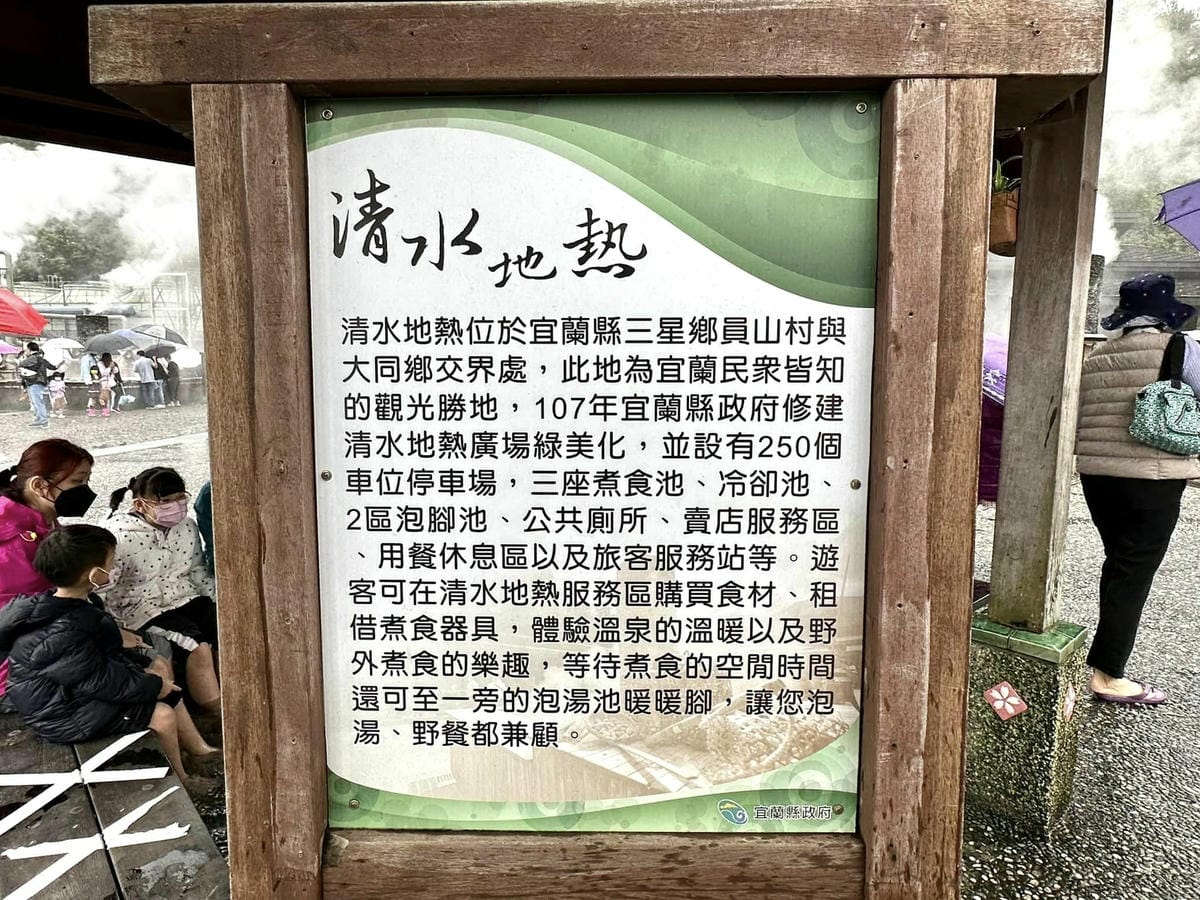 清水地熱
清水地熱位於宜蘭縣三星鄉員山村與
大同鄉交界處，此地為宜蘭民眾皆知
的觀光勝地，107年宜蘭縣政府修建
清水地熱廣場綠美化，並設有250個
車位停車場，三座煮食池、冷卻池、
2區泡腳池、公共廁所、賣店服務區
、用餐休息區以及旅客服務站等。遊
客可在清水地熱服務區購買食材、租
借煮食器具，體驗溫泉的溫暖以及野
外煮食的樂趣，等待煮食的空閒時間
還可至一旁的泡湯池暖暖腳，讓您泡
湯、野餐都兼顧。
宜蘭縣政府